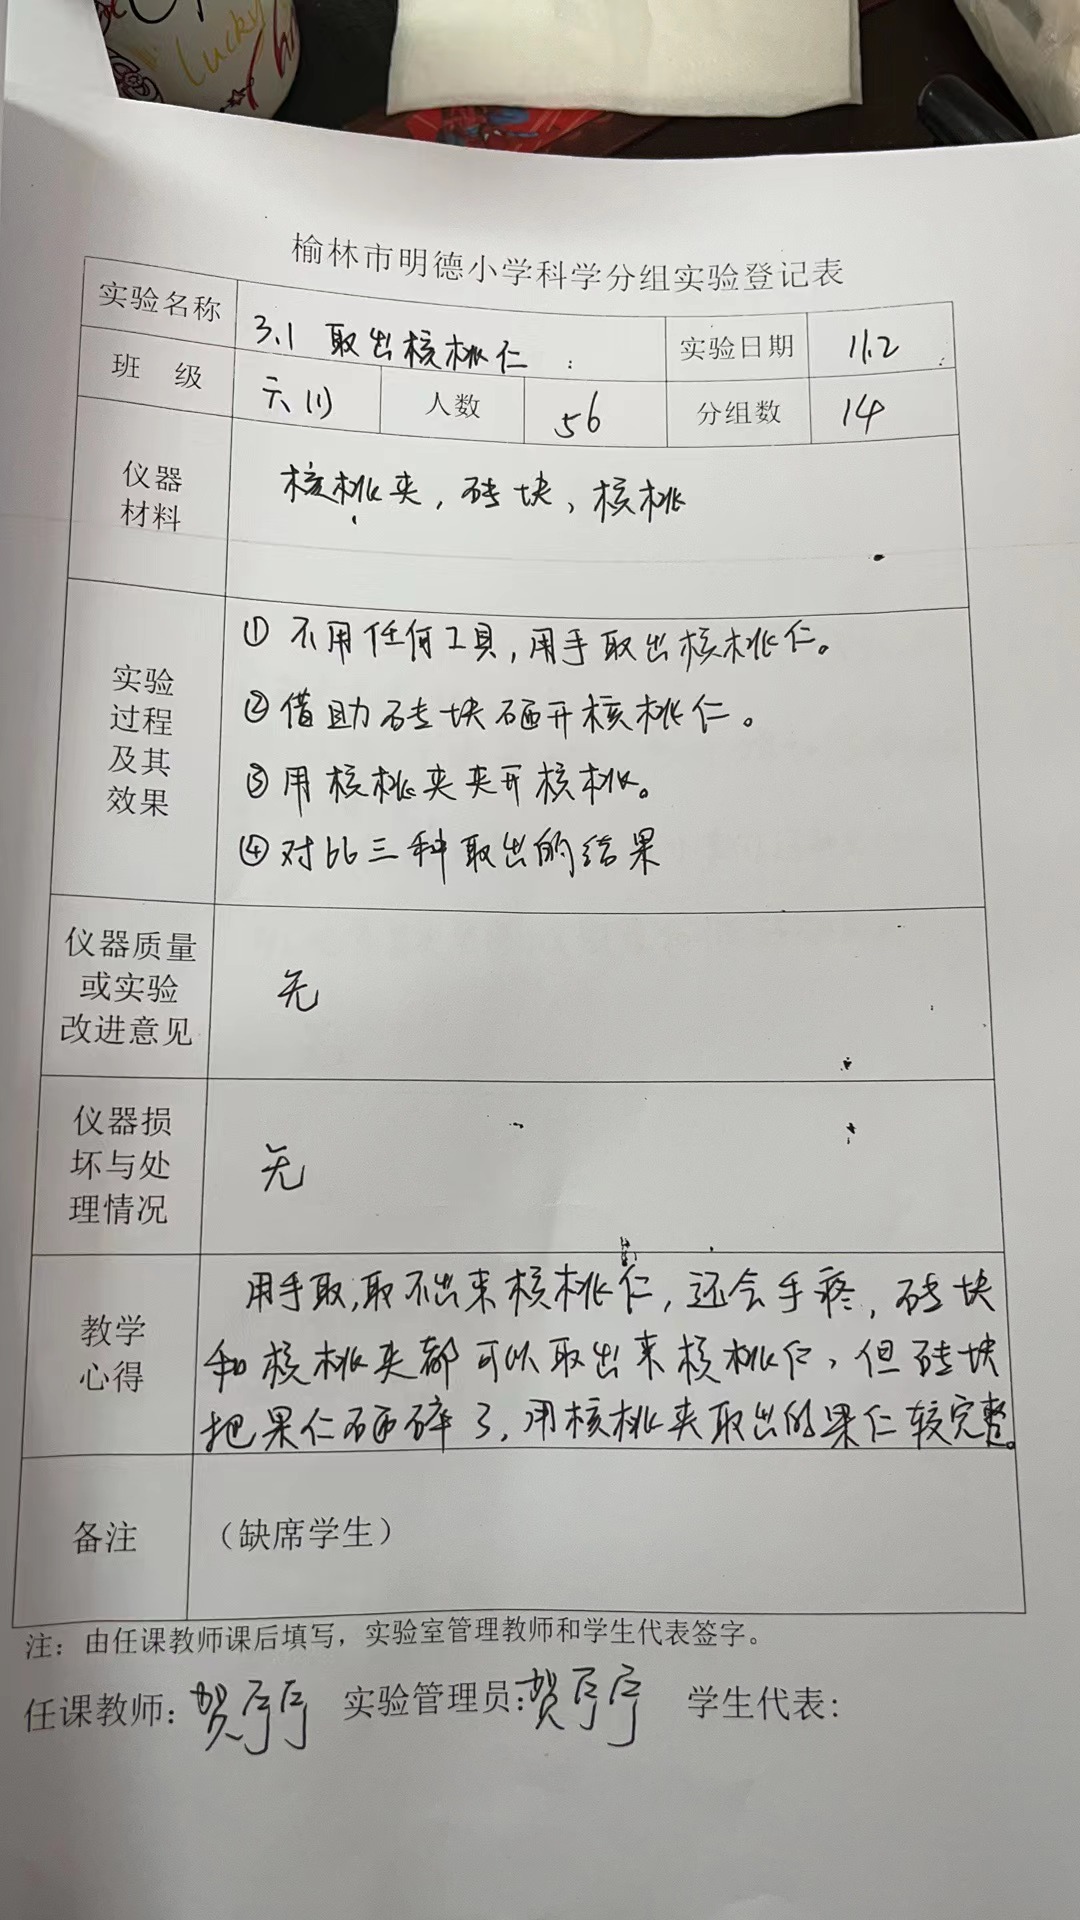 Lucky
榆林市明德小学科学分组实验登记表
实验名称 3.1 取出核桃仁 实验日期 11.2
班 级 六(1) 人数 56 分组数 14
仪器
材料
核桃夹,砖块,核桃
实验
过程
及其
效果
①不用任何工具,用手取出核桃仁。
②借助砖块砸开核桃仁。
③用核桃夹夹开核桃。
④对比三种取出的结果
仪器质量
或实验
改进意见
无
仪器损
坏与处
理情况
无
教学
心得
用手取,取不出来核桃仁,还会手疼,砖块
和核桃夹都可以取出来核桃仁,但砖块
把果仁砸碎了,用核桃夹取出的果仁较完整。
备注 (缺席学生)
注:由任课教师课后填写,实验室管理教师和学生代表签字。
任课教师:贺 实验管理员:贺 学生代表: